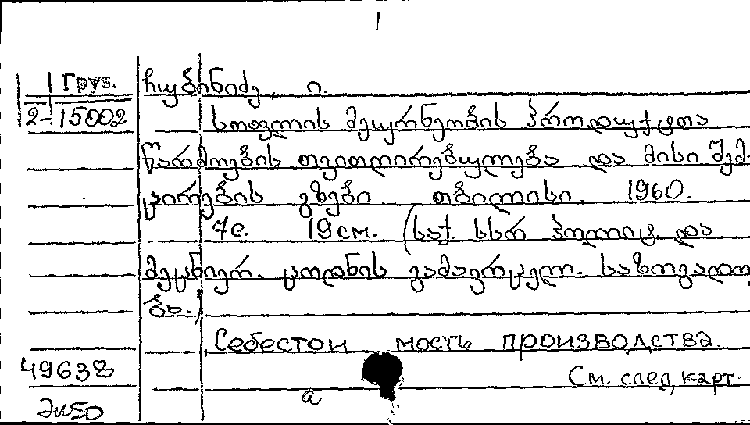 1
Груз.
2-15002
ჩუბინიძე, ი.
სოფლის მეურნეობის პროდუქტთა
წარმოების თვითღირებულება და მისი შემ-
ცირების გზები. თბილისი. 1960.
7с. 19см. (საქ. სსრ პოლიტ. და
მეცნიერ. ცოდნის გამავრცელ. საზოგადოე-
ბა.)
Себестои мость производства.
49638
См. след. карт.
а